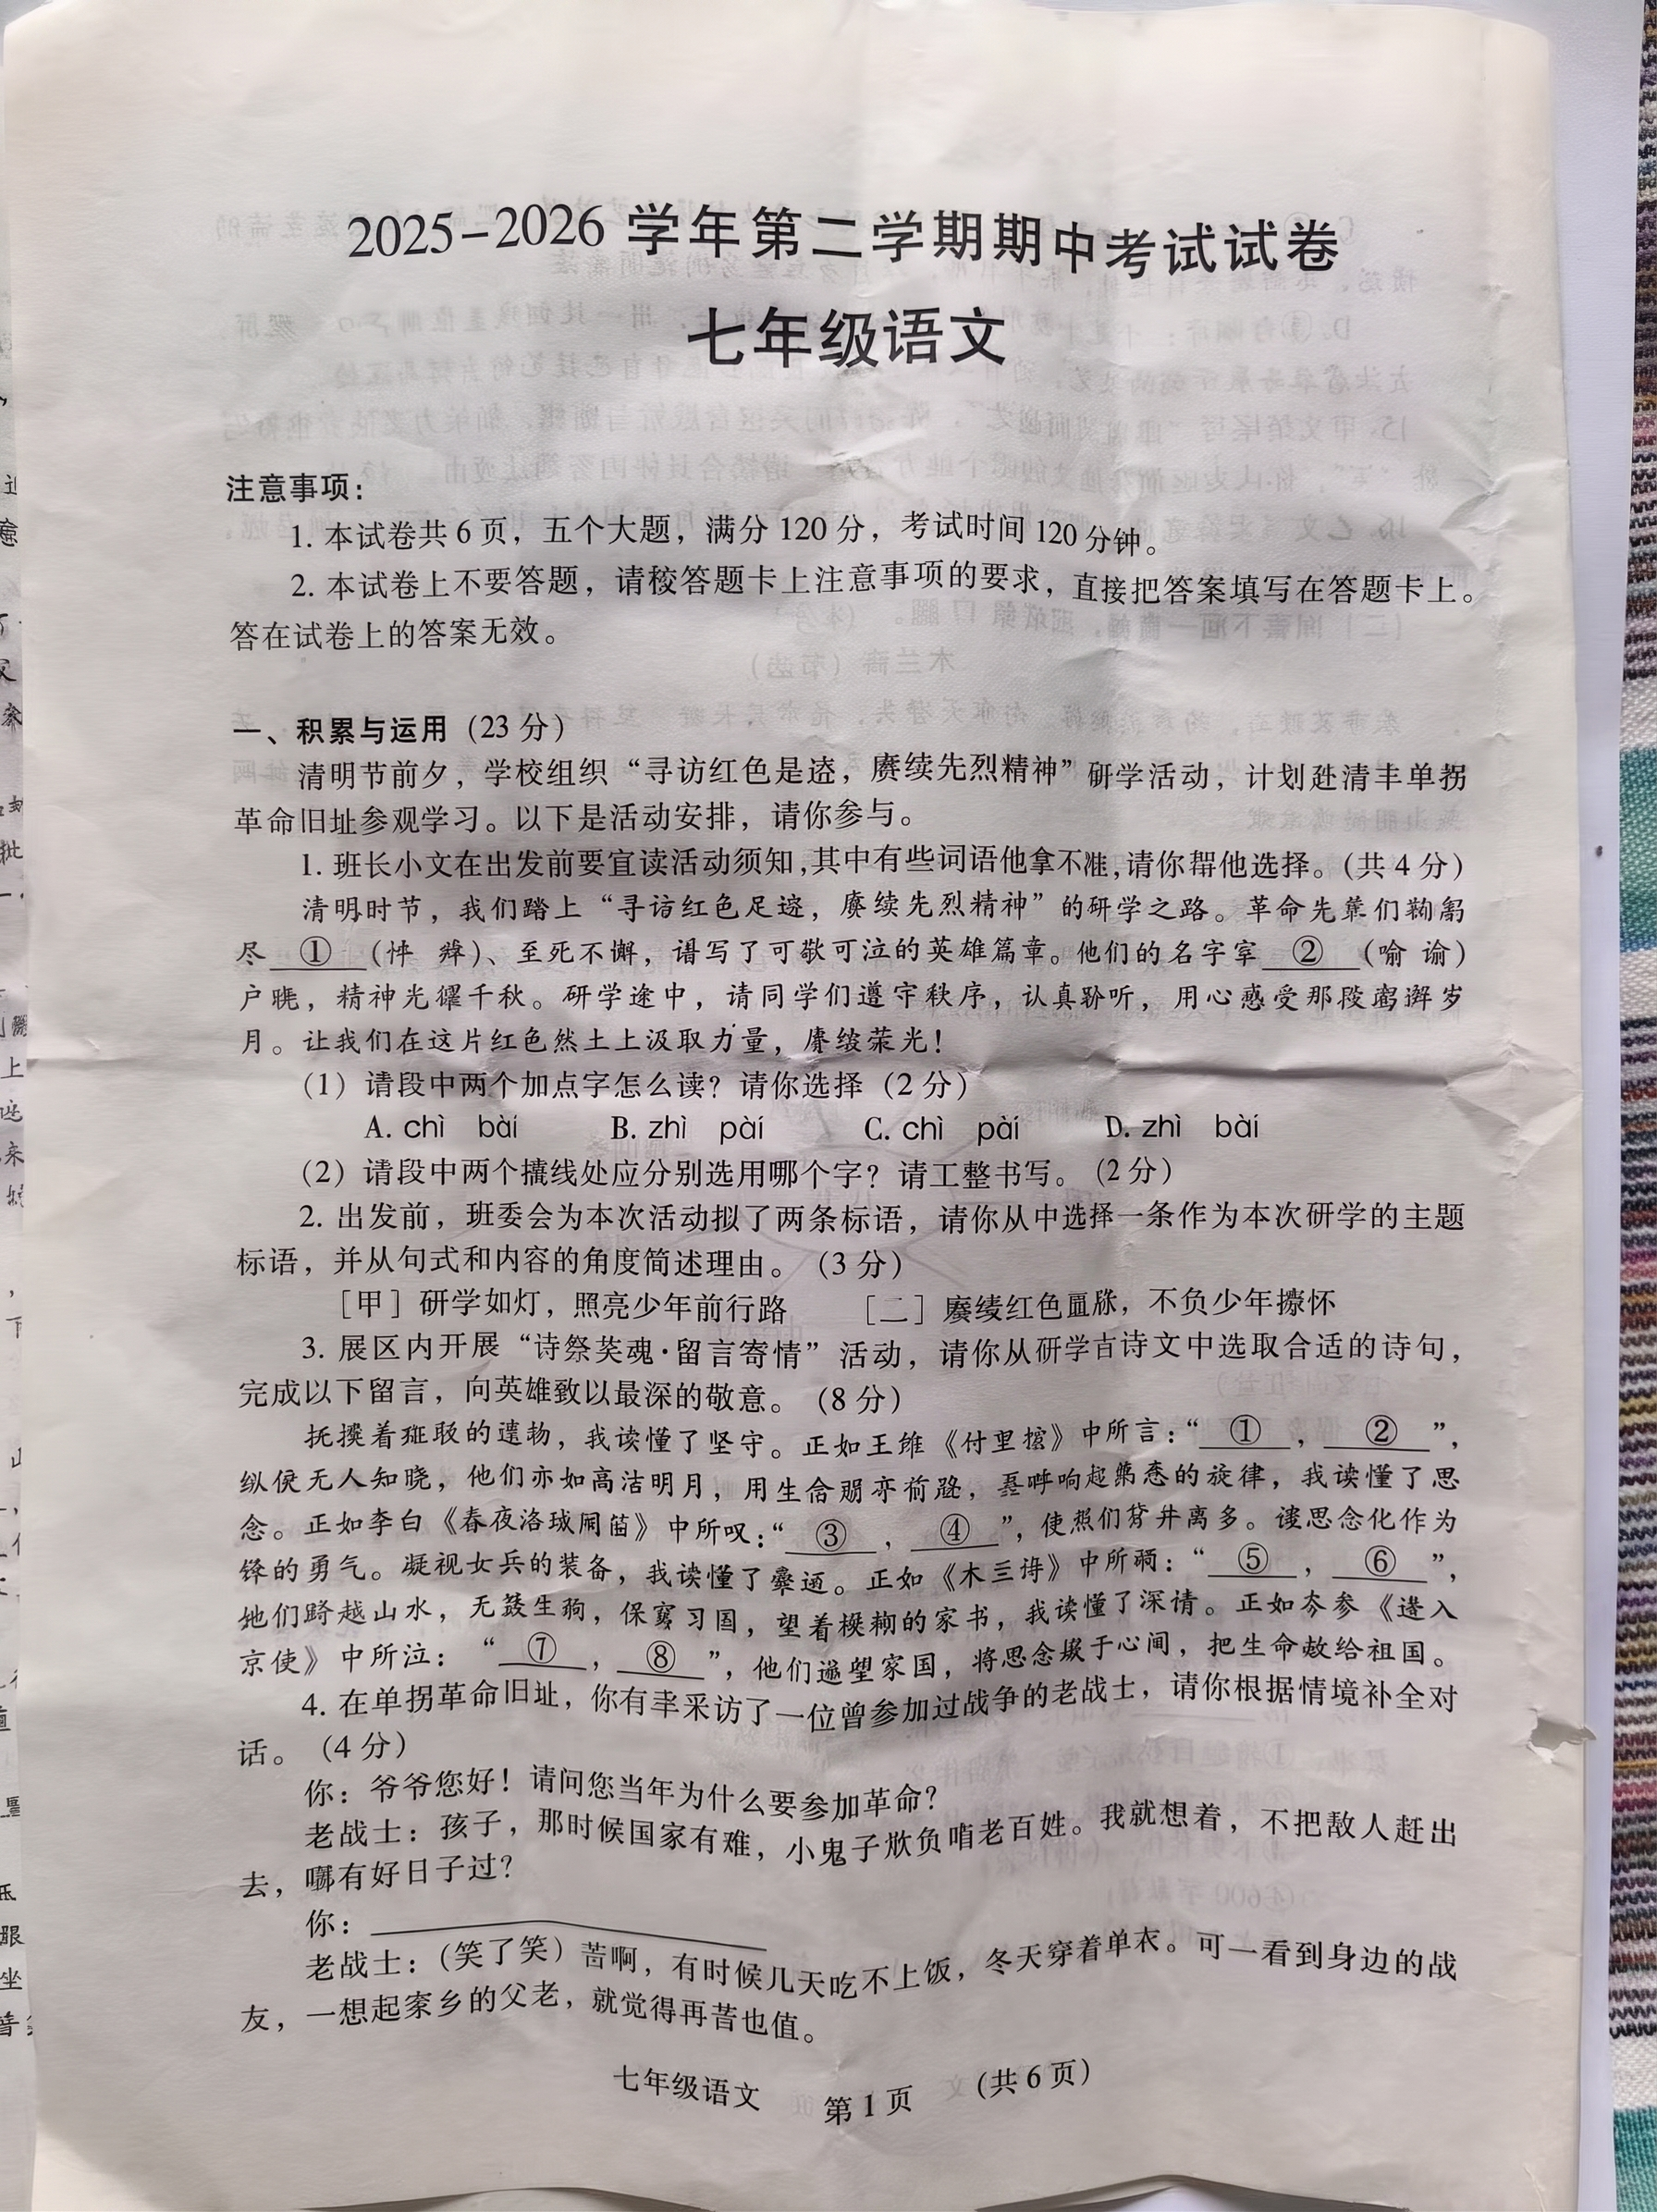 2025-2026 学年第二学期期中考试试卷
七年级语文
注意事项：
1. 本试卷共 6 页，五个大题，满分 120 分，考试时间 120 分钟。
2. 本试卷上不要答题，请按答题卡上注意事项的要求，直接把答案填写在答题卡上。
答在试卷上的答案无效。
一、积累与运用（23 分）
清明节前夕，学校组织“寻访红色足迹，赓续先烈精神”研学活动，计划赴清丰单拐
革命旧址参观学习。以下是活动安排，请你参与。
1. 班长小文在出发前要宣读活动须知，其中有些词语他拿不准，请你帮他选择。（共 4 分）
清明时节，我们踏上“寻访红色足迹，赓续先烈精神”的研学之路。革命先辈们鞠躬
尽 ① （ ）、至死不懈，谱写了可歌可泣的英雄篇章。他们的名字家 ② （喻 谕）
户晓，精神光耀千秋。研学途中，请同学们遵守秩序，认真聆听，用心感受那段 岁
月。让我们在这片红色热土上汲取力量，赓续荣光！
（1）语段中两个加点字怎么读？请你选择（2 分）
A. chì bài B. zhì pài C. chì pài D. zhì bài
（2）语段中两个横线处应分别选用哪个字？请工整书写。（2 分）
2. 出发前，班委会为本次活动拟了两条标语，请你从中选择一条作为本次研学的主题
标语，并从句式和内容的角度简述理由。（3 分）
［甲］研学如灯，照亮少年前行路 ［ ］赓续红色 ，不负少年 怀
3. 展区内开展“诗祭英魂·留言寄情”活动，请你从研学古诗文中选取合适的诗句，
完成以下留言，向英雄致以最深的敬意。（8 分）
抚摸着斑驳的遗物，我读懂了坚守。正如王维《竹里馆》中所言：“ ① ， ② ”，
纵使无人知晓，他们亦如高洁明月，用生命照亮前路， 响起 的旋律，我读懂了思
念。正如李白《春夜洛城闻笛》中所叹：“ ③ ， ④ ”，使他们背井离乡。 思念化作为
锋的勇气。凝视女兵的装备，我读懂了 。正如《木兰诗》中所 ：“ ⑤ ， ⑥ ”，
她们跨越山水，无 生 ，保家 国，望着模糊的家书，我读懂了深情。正如岑参《逢入
京使》中所泣：“ ⑦ ， ⑧ ”，他们遥望家国，将思念 于心间，把生命献给祖国。
4. 在单拐革命旧址，你有幸采访了一位曾参加过战争的老战士，请你根据情境补全对
话。（4 分）
你：爷爷您好！请问您当年为什么要参加革命？
老战士：孩子，那时候国家有难，小鬼子欺负咱老百姓。我就想着，不把敌人赶出
去，哪有好日子过？
你：
老战士：（笑了笑）苦啊，有时候几天吃不上饭，冬天穿着单衣。可一看到身边的战
友，一想起家乡的父老，就觉得再苦也值。
七年级语文 第 1 页 （共 6 页）